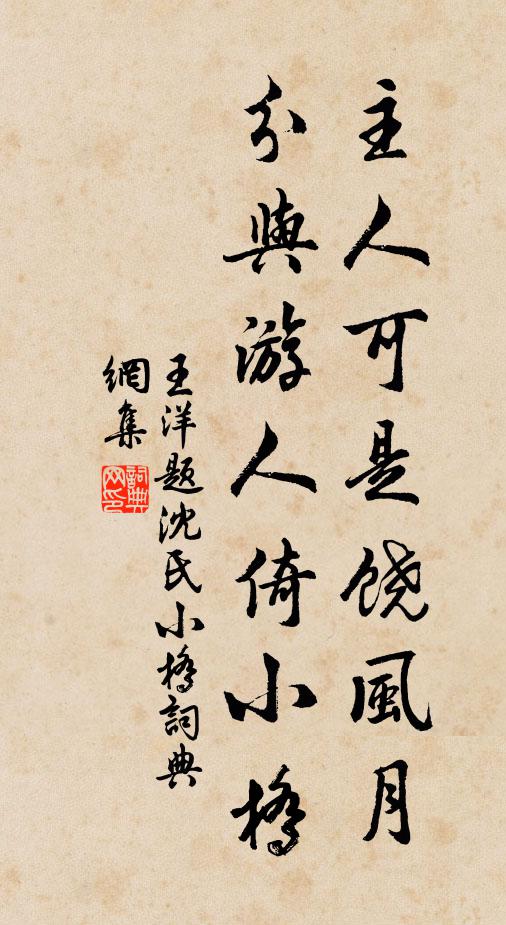 主人可是饶風月
分與游人倚小橋
王洋題沈氏小橋詞典
網集
詞典网印